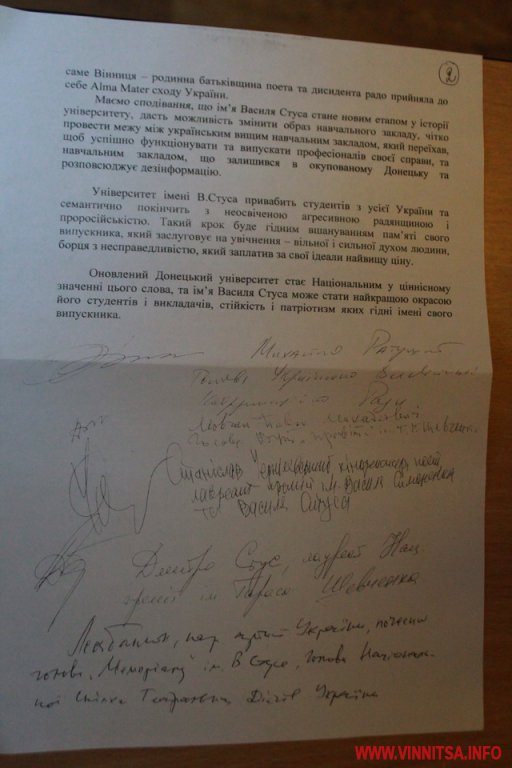 2
саме Вінниця – родинна батьківщина поета та дисидента радо прийняла до
себе Alma Mater сходу України.
Маємо сподівання, що ім'я Василя Стуса стане новим етапом у історії
університету, дасть можливість змінити образ навчального закладу, чітко
провести межу між українським вищим навчальним закладом, який переїхав,
щоб успішно функціонувати та випускати професіоналів своєї справи, та
навчальним закладом, що залишився в окупованому Донецьку та
розповсюджує дезінформацію.
Університет імені В.Стуса привабить студентів з усієї України та
семантично покінчить з неосвіченою агресивною радянщиною і
проросійськістю. Такий крок буде гідним вшануванням пам'яті свого
випускника, який заслуговує на увічнення – вільної і сильної духом людини,
борця з несправедливістю, який заплатив за свої ідеали найвищу ціну.
Оновлений Донецький університет стає Національним у ціннісному
значенні цього слова, та ім'я Василя Стуса може стати найкращою окрасою
його студентів і викладачів, стійкість і патріотизм яких гідні імені свого
випускника.
Михайло
Голова
Ради
Мовчан Павло Михайлович
Голова
Станіслав
лауреат премії ім. Василя Симоненка
Василя Стуса
Дмитро Стус, лауреат Нац
премії ім Тараса Шевченка
нар України, почесн
голова „Меморіалу" ім. В Стуса, голова Націонал
Україна
WWW.VINNITSA.INFO